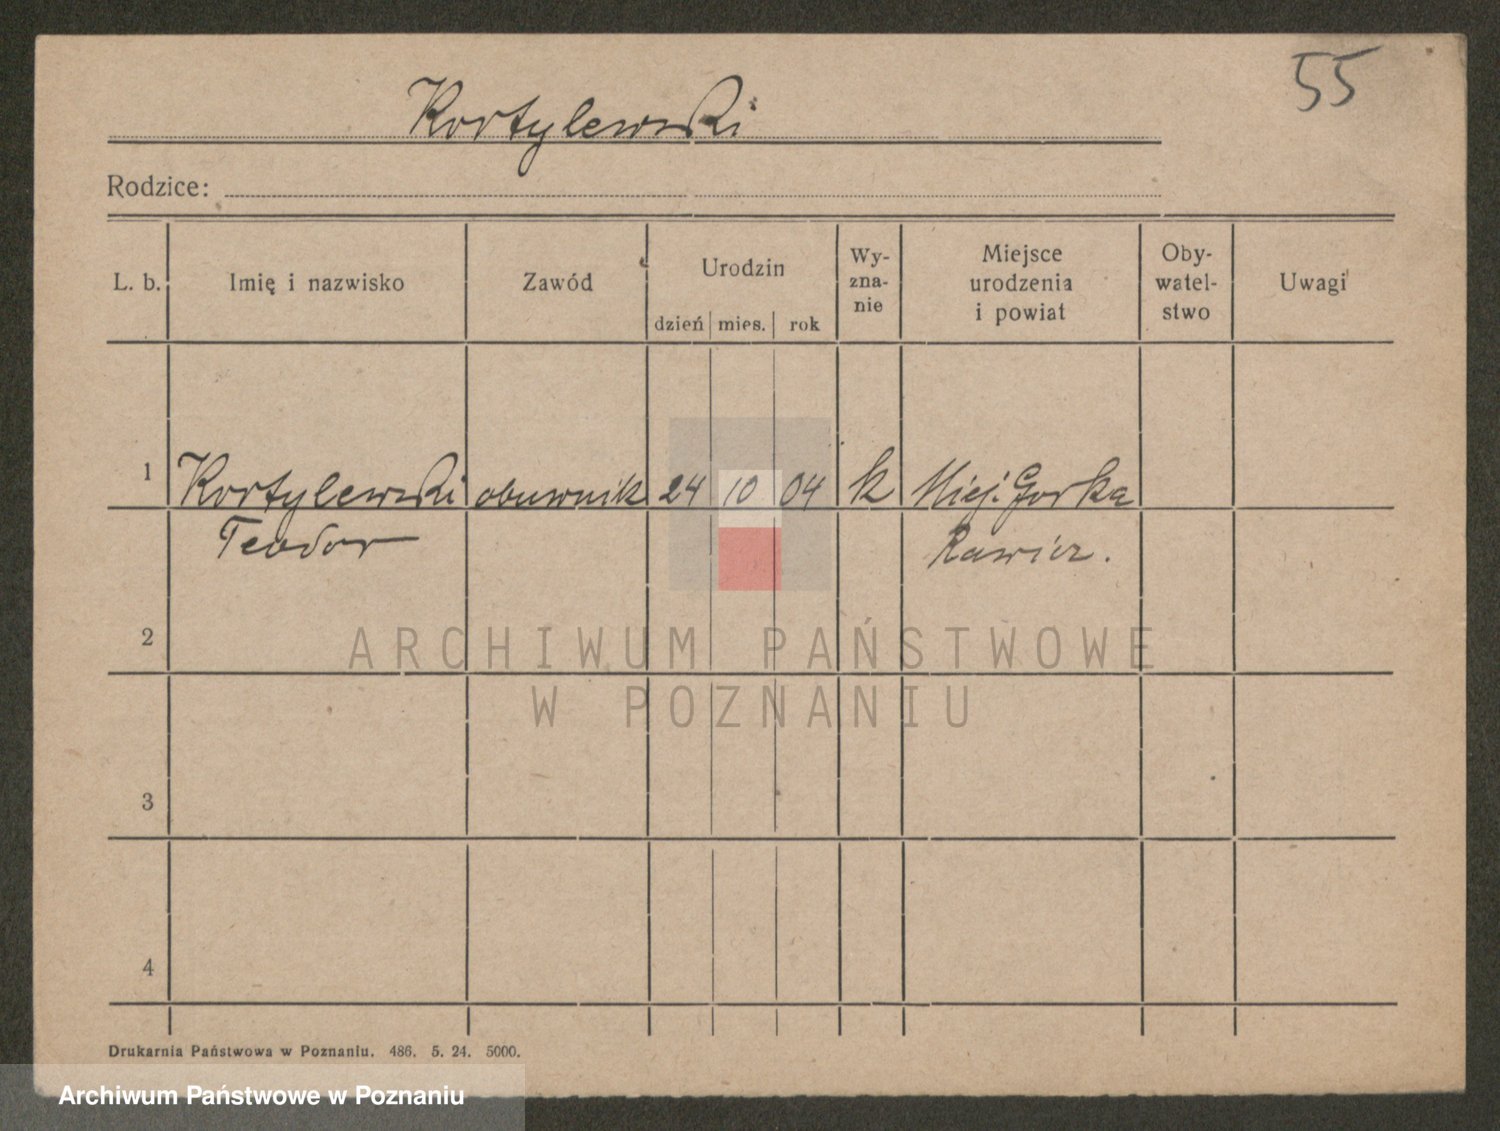 55
Kortylewski
Rodzice:
L. b.
Imię i nazwisko
Zawód
Urodzin
dzień
mies.
rok
Wy-
zna-
nie
Miejsce
urodzenia
i powiat
Oby-
watel-
stwo
Uwagi
1
Kortylewski
Teodor
obuwnik
24
10
04
k
Miej. Gorka
Rawicz.
2
3
4
ARCHIWUM PAŃSTWOWE
W POZNANIU
Drukarnia Państwowa w Poznaniu. 486. 5. 24. 5000.
Archiwum Państwowe w Poznaniu